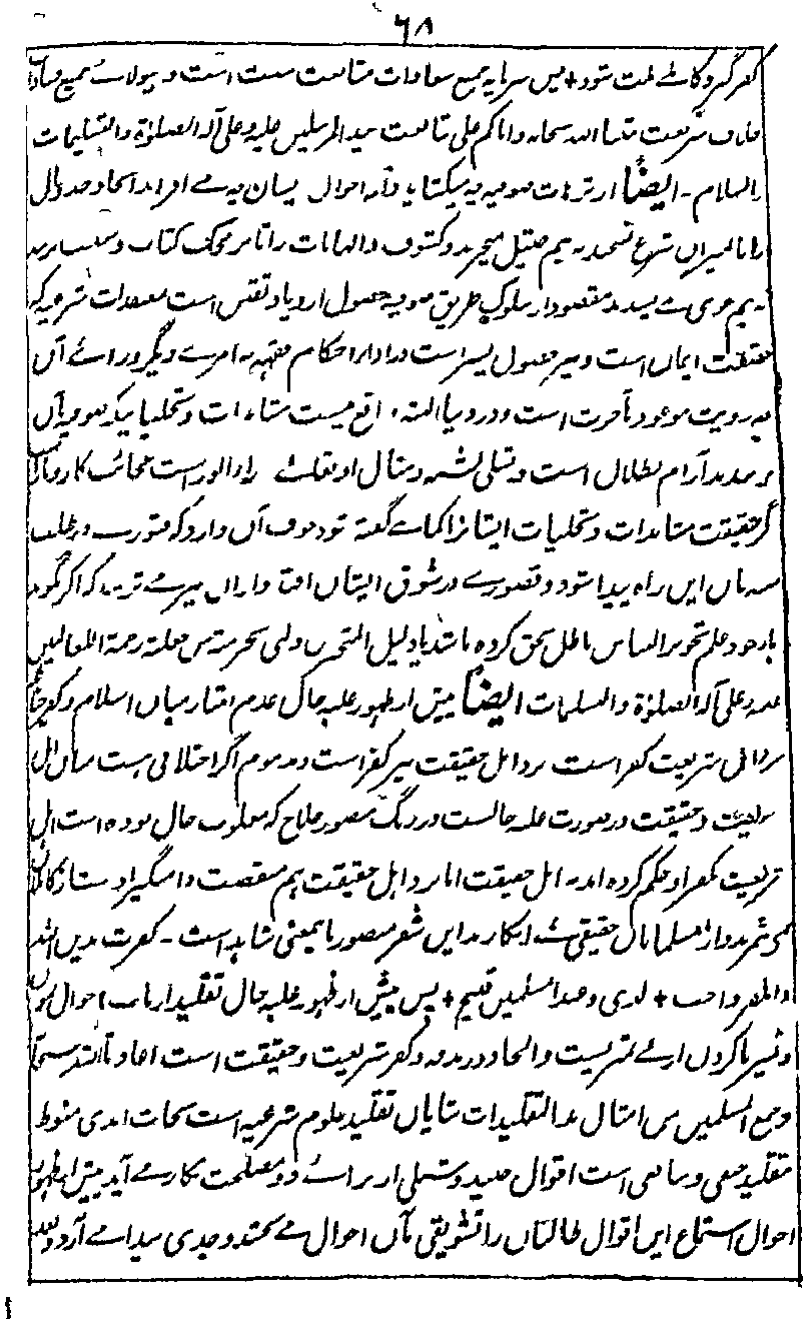 ٦٨
کفر گیرد کاملے ملت شود + پس سرمایه جمیع سعادات متابعت سنت است و ہیولائے جمیع فسادات
خلاف شریعت ثبتنا الله سبحانه وایاکم علی متابعت سید المرسلین علیه وعلی آله الصلوٰة والتسلیمات
والسلام - ایضًا از ترہات صوفیه چه میکشاید و از احوال ایشان چه مے افزاید آنجا وجد و حال
را تا بمیزان شرع نسنجند به نیم چیتل نمیخرند و کشوف و الہامات را تا بر محک کتاب و سنت نزنند
به نیم جوی نمے پسندند مقصود از سلوک طریق صوفیه حصول ازدیاد یقین است بمعتقدات شرعیه که
حقیقت ایمان است و نیز حصول یسر است در ادائے احکام فقہیه نه امرے دیگر ورائے آں
چه رویت موعود بآخرت است و در دنیا البته واقع نیست مشاہدات و تجلیاتیکه صوفیه بآں
خرسندند آرام بظلال است و تسلی بشبه و مثال او تعالیٰ وراء الوراست عجائب کار و بار است
گر حقیقت مشاہدات و تجلیات ایشانرا کماہی گفته شود خوف آں دارد که فتورے در طلب
مبتدیان ایں راه پیدا شود و قصورے در شوق ایشاں افتد و ازاں نیز مے ترسد که اگر نگوید
باوجود علم تجویز التباس باطل بحق کرده باشد یا دلیل المتحیرین دلنی بحرمة من جعلته رحمة للعالمین
علیه وعلی آله الصلوٰة والتسلیمات ایضًا پیش از ظہور غلبه حال عدم امتیاز میاں اسلام و کفر چنانچه
نزد اہل شریعت کفر است نزد اہل حقیقت نیز کفر است و مذموم اگر اختلافی ہست میان اہل
شریعت و حقیقت در صورت غلبه حالست در رنگ منصور حلاج که مغلوب حال بوده است اہل
شریعت بکفر او حکم کرده اند نه اہل حقیقت اما نزد اہل حقیقت ہم منقصت دامنگیر اوست از کاملان
نمی شمرند و از مسلمانان حقیقی نے انگارند ایں شعر منصور بایمعنی شاہد است - کفرت بدین الله
والکفر واجب + لدی وعند المسلمین قبیح + پس پیش از ظہور غلبه حال تقلید ارباب احوال نمودن
و تمیز ناکردن از بے تمیزیست و الحاد و زندقه و کفر شریعت و حقیقت است اعاذنا الله سبحانه
وجمیع المسلمین من امثال ہذه التقلیدات شایاں تقلید علوم شرعیه است نجات ابدی منوط
بتقلید حنفی و شافعی است اقوال جنید و شبلی از برائے دو مصلحت بکار مے آید پیش از ظہور
احوال استماع ایں اقوال طالبان را تشویقی بآں احوال مے بخشد و وجدی پیدا مے آرد و بعد